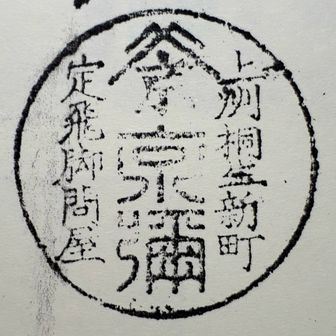 上州桐生新町
京彌
定飛脚問屋